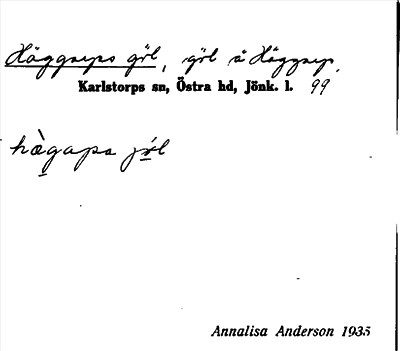 Häggarps göl, göl å Häggarp.
Karlstorps sn, Östra hd, Jönk. l. 99
hàgapa jöl
Annalisa Anderson 1935